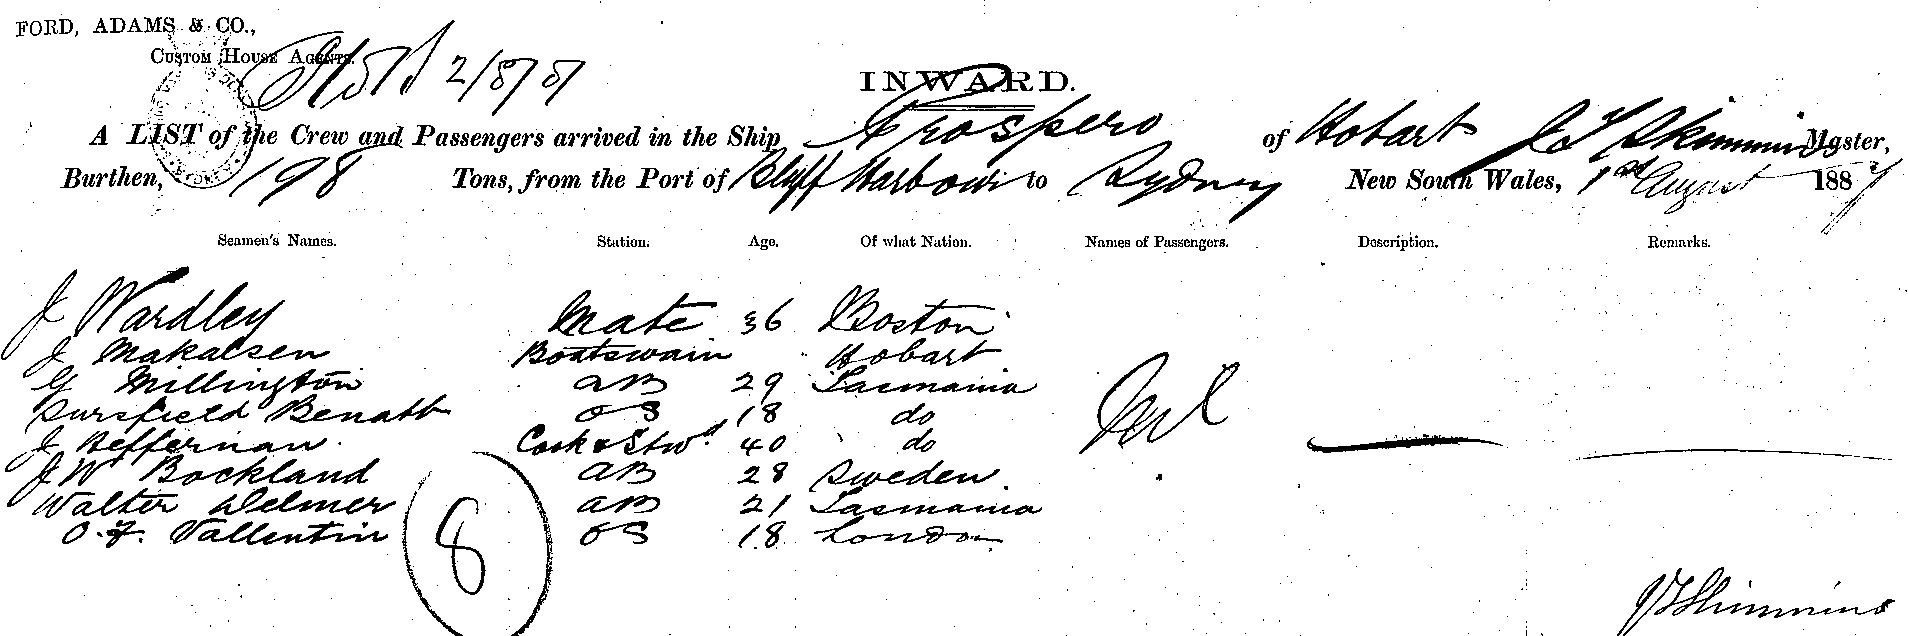 FORD, ADAMS & CO.,
CUSTOM HOUSE AGENTS.
2/8/87
INWARD.
A LIST of the Crew and Passengers arrived in the Ship Prospero of Hobart J S Skimmins Master,
Burthen, 198 Tons, from the Port of Bluff Harbour to Sydney New South Wales, 1st August 1887
Seamen's Names. Station. Age. Of what Nation. Names of Passengers. Description. Remarks.
J Wardley Mate 36 Boston
J Makaesen Boatswain Hobart
G Millington AB 29 Tasmania
Dursfield Benatt OS 18 do
J Heffernan Cook & Stwd 40 do
J W Bockland AB 28 Sweden
Walter Delmer AB 21 Tasmania
O. F. Vallentin OS 18 London
Nil
8
J S Skimmins